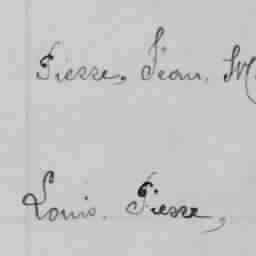 Pierre, Jean, M
Louis. Pierre,